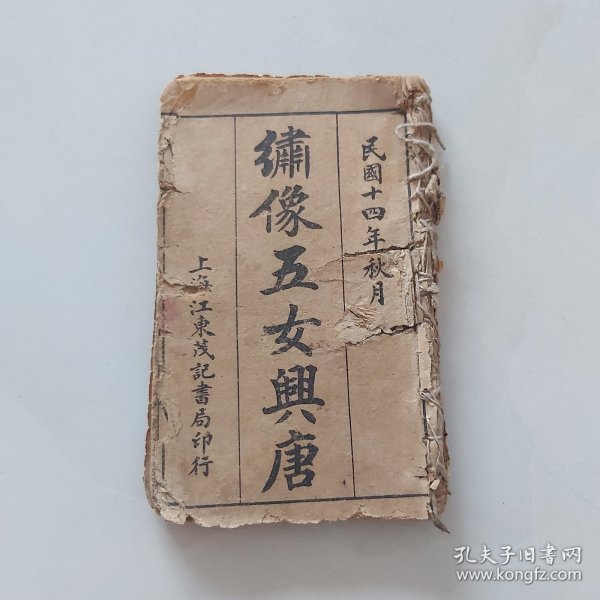 民國十四年秋月
繡像五女興唐
上海江東茂記書局印行
孔夫子旧书网
www.kongfz.com